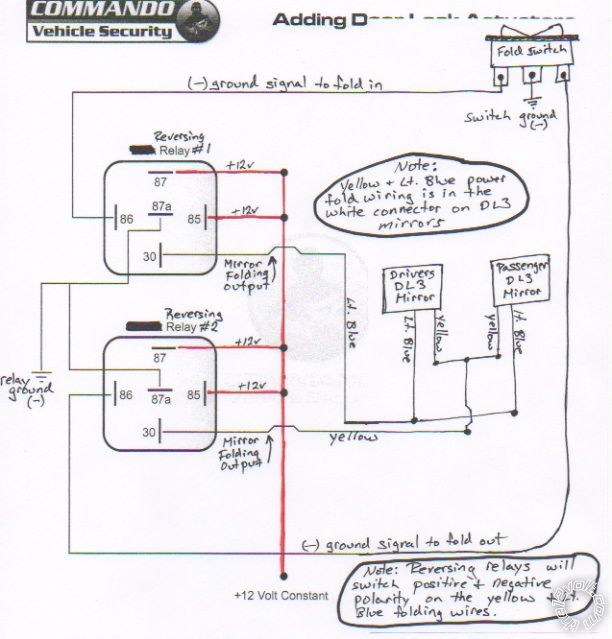 COMMANDO
Vehicle Security
Adding Door Lock Actuators
Fold Switch
(-) ground signal to fold in
switch ground
(-)
Reversing
Relay #1
87
+12v
86
87a
85
+12v
30
Mirror
Folding
output
Note:
Yellow + Lt. Blue power
fold wiring is in the
white connector on DL3
mirrors
Drivers
DL3
Mirror
Passenger
DL3
Mirror
Lt. Blue
Lt. Blue
yellow
yellow
Lt. Blue
Reversing
Relay #2
87
+12v
relay
ground
(-)
86
87a
85
+12v
30
Mirror
Folding
Output
yellow
(-) ground signal to fold out
+12 Volt Constant
Note: Reversing relays will
switch positive + negative
polarity on the yellow + Lt.
Blue folding wires.